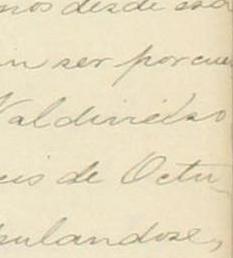 nos desde esa
n ser por cue
Valdivielso
eis de Octu
pulandose,